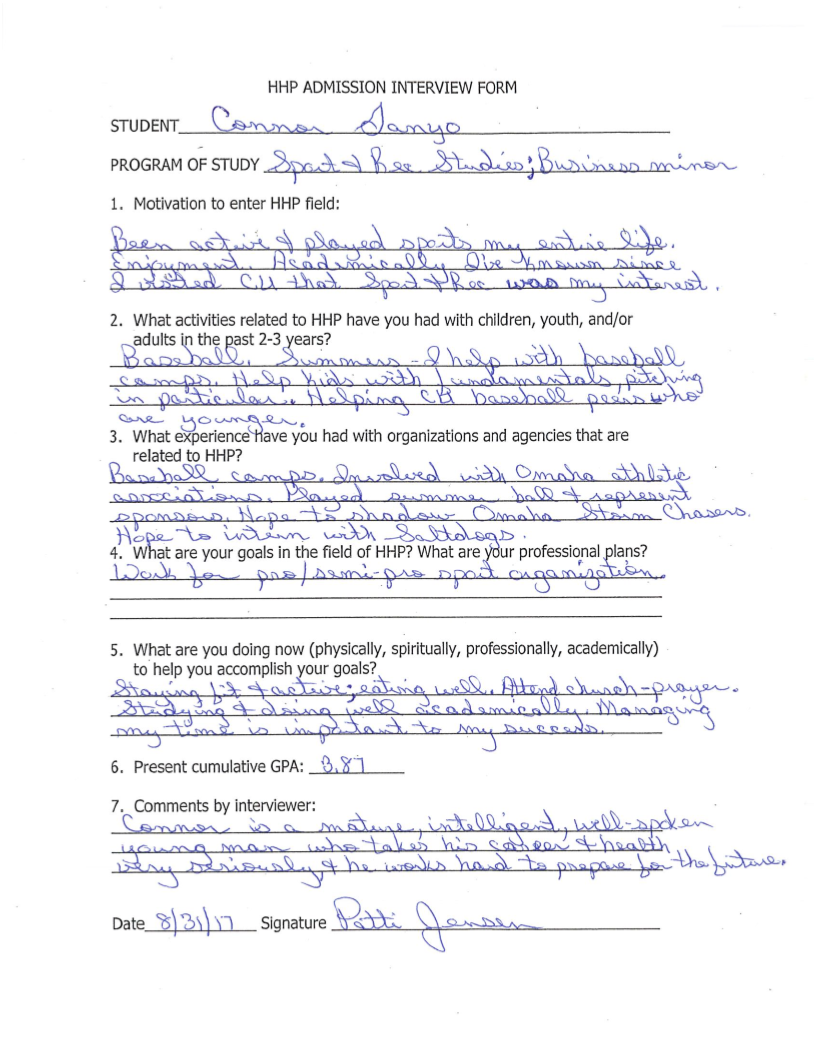 HHP ADMISSION INTERVIEW FORM
STUDENT Connor Sanyo
PROGRAM OF STUDY Sport & Rec Studies; Business minor
1. Motivation to enter HHP field:
Been active & played sports my entire life.
Enjoyment. Academically I've known since
I visited CU that Sport & Rec was my interest.
2. What activities related to HHP have you had with children, youth, and/or
adults in the past 2-3 years?
Baseball. Summers - I help with baseball
camps. Help kids with fundamentals, pitching
in particular. Helping CU baseball peers who
are younger.
3. What experience have you had with organizations and agencies that are
related to HHP?
Baseball camps. Involved with Omaha athletic
associations. Played summer ball & represent
sponsors. Hope to shadow Omaha Storm Chasers.
Hope to intern with Saltdogs.
4. What are your goals in the field of HHP? What are your professional plans?
Work for pro/semi-pro sport organization.
5. What are you doing now (physically, spiritually, professionally, academically)
to help you accomplish your goals?
Staying fit & active; eating well. Attend church - prayer.
Studying & doing well academically. Managing
my time is important to my success.
6. Present cumulative GPA: 3.87
7. Comments by interviewer:
Connor is a mature, intelligent, well-spoken
young man who takes his career & health
very seriously & he works hard to prepare for the future.
Date 8/31/17 Signature Patti Jensen